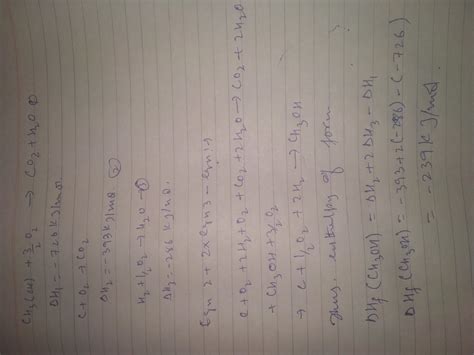 CH3(OH) + 3/2 O2 → CO2 + H2O ①
ΔH1 = -726 kJ/mol
C + O2 → CO2
ΔH2 = -393 kJ/mol ②
H2 + 1/2 O2 → H2O - ③
ΔH3 = -286 kJ/mol.
Eqn 2 + 2x Eqn 3 - Eqn 1
C + O2 + 2H2 + O2 + CO2 + 2H2O → CO2 + 2H2O
+ CH3OH + 3/2 O2
→ C + 1/2 O2 + 2H2 → CH3OH
Thus enthalpy of form
ΔHf (CH3OH) = ΔH2 + 2ΔH3 - ΔH1
ΔHf (CH3OH) = -393 + 2(-286) - (-726)
= -239 kJ/mol.